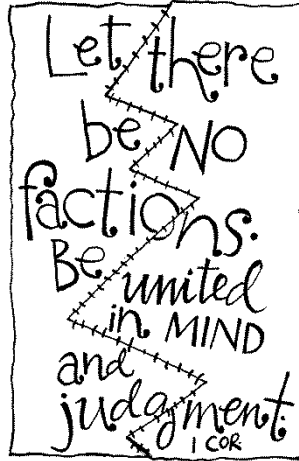 Let there
be NO
factions.
Be united
in MIND
and
judgment.
I COR